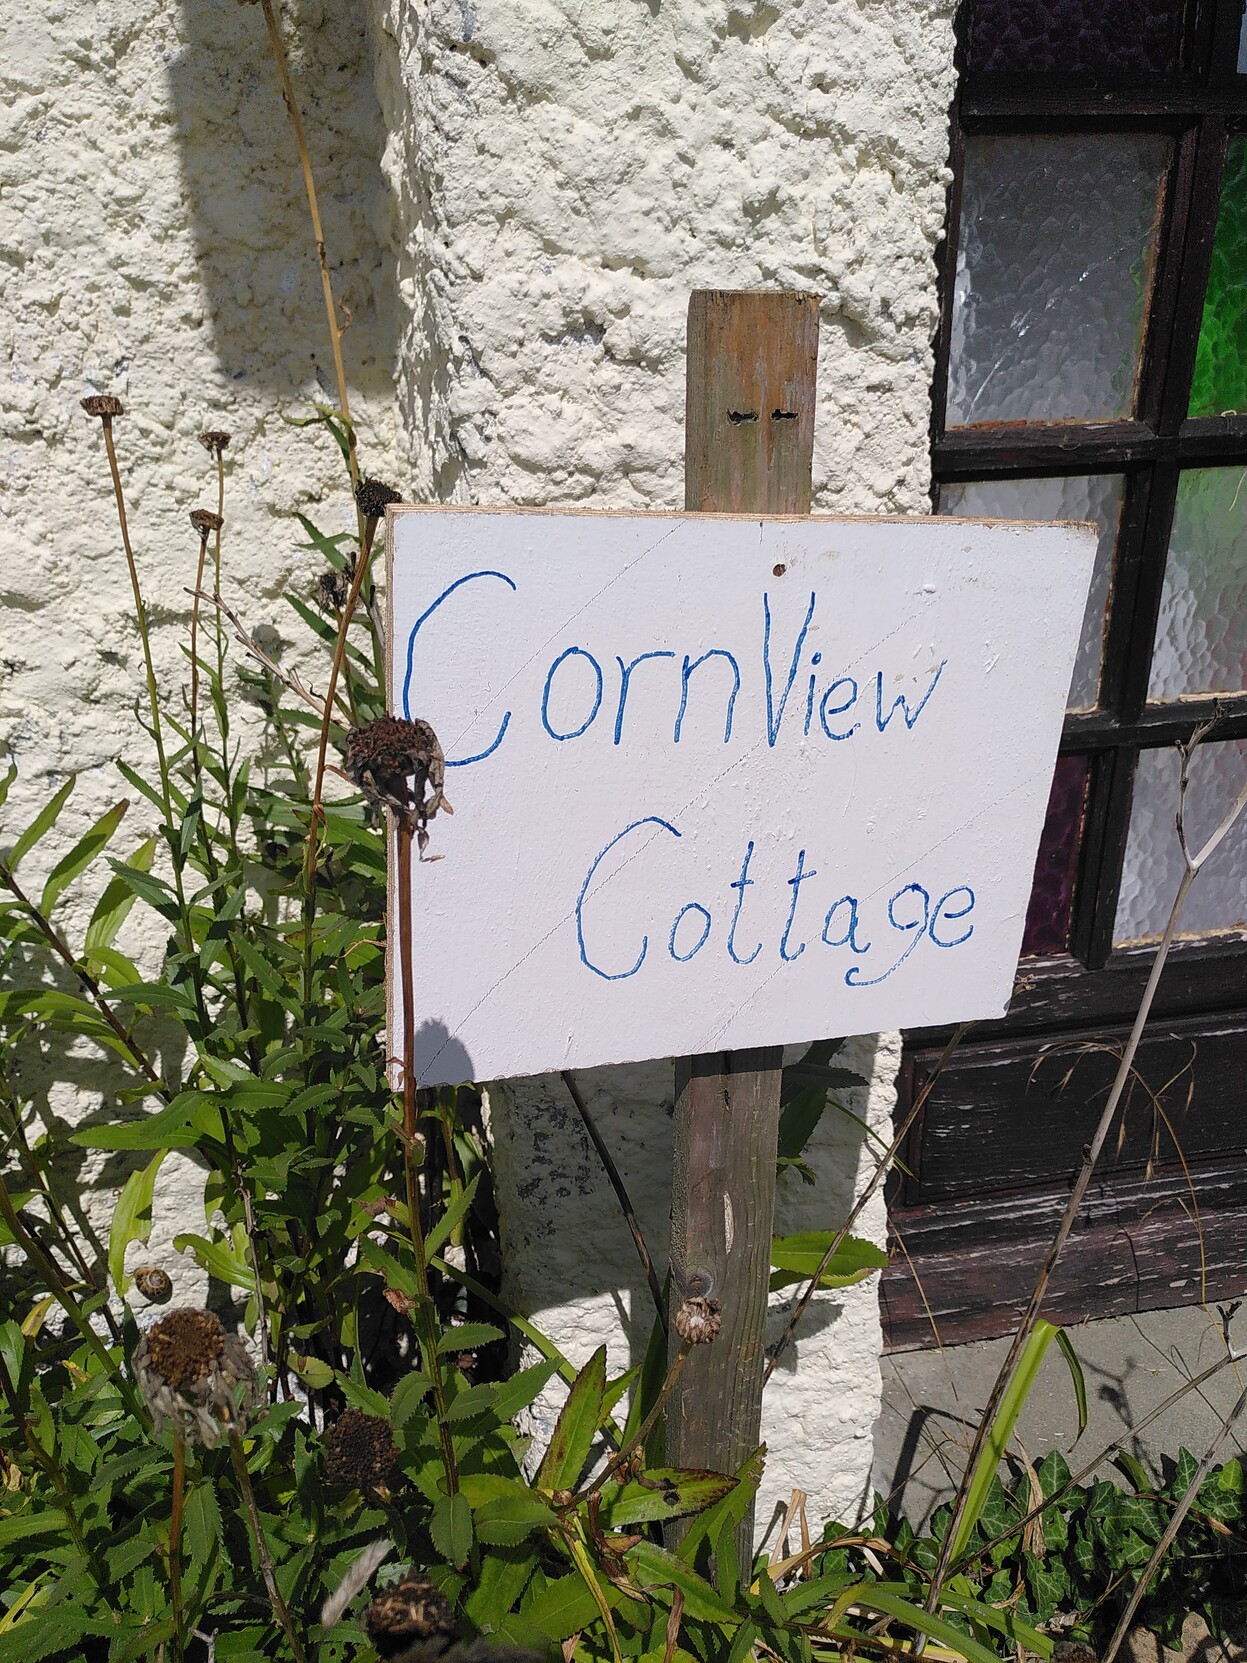 CornView
Cottage